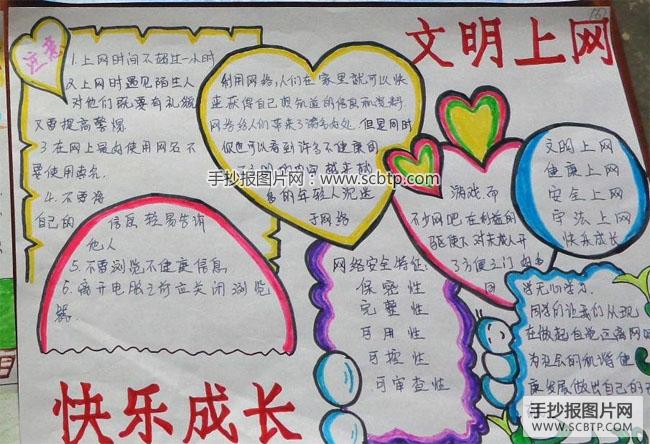 文明上网
注意
1.上网时间不超过一小时
2.上网时遇见陌生人
对他们既要有礼貌
又要提高警惕
3.在网上最好使用网名不
要使用真名
4.不要将
自己的 信息轻易告诉
他人
5.不要浏览不健康信息
6.离开电脑之前应关闭浏览
器
利用网络,人们在家里就可以快
速获得自己想知道的信息和资料
网络给人们带来了诸多好处 但是同时
你也可以看到许多不健康的
多的年轻人沉迷
于网络
手抄报图片网:www.scbtp.com
游戏.而
不少网吧在利益的
驱使下对未成人开
了方便之门
文明上网
健康上网
安全上网
守法上网
快乐成长
网络安全特征:
保密性
完整性
可用性
可控性
可审查性
学无心学习.
同学们让我们从现
在做起自觉远离网吧
为社会的和谐健
康发展做出自己的
快乐成长
手抄报图片网
WWW.SCBTP.COM